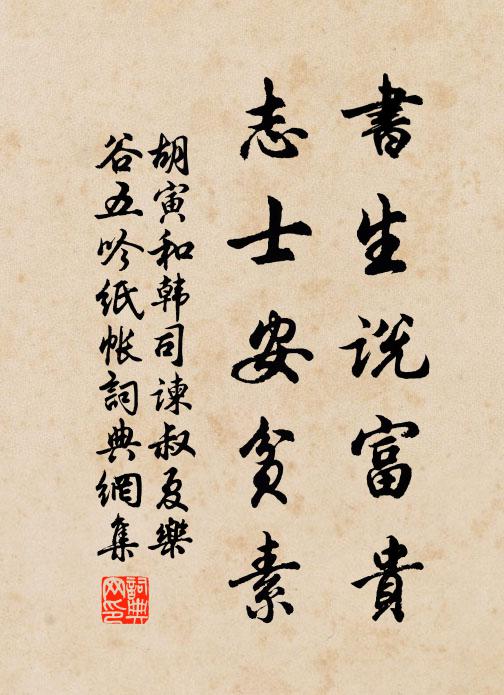 書生説富貴
志士安貧素
胡寅和韩司谏叔夏樂
谷五吟纸帐詞典網集
詞典网印